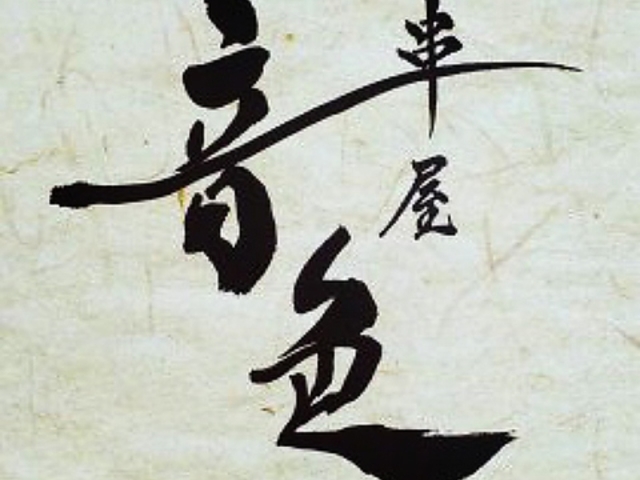 串屋
音色